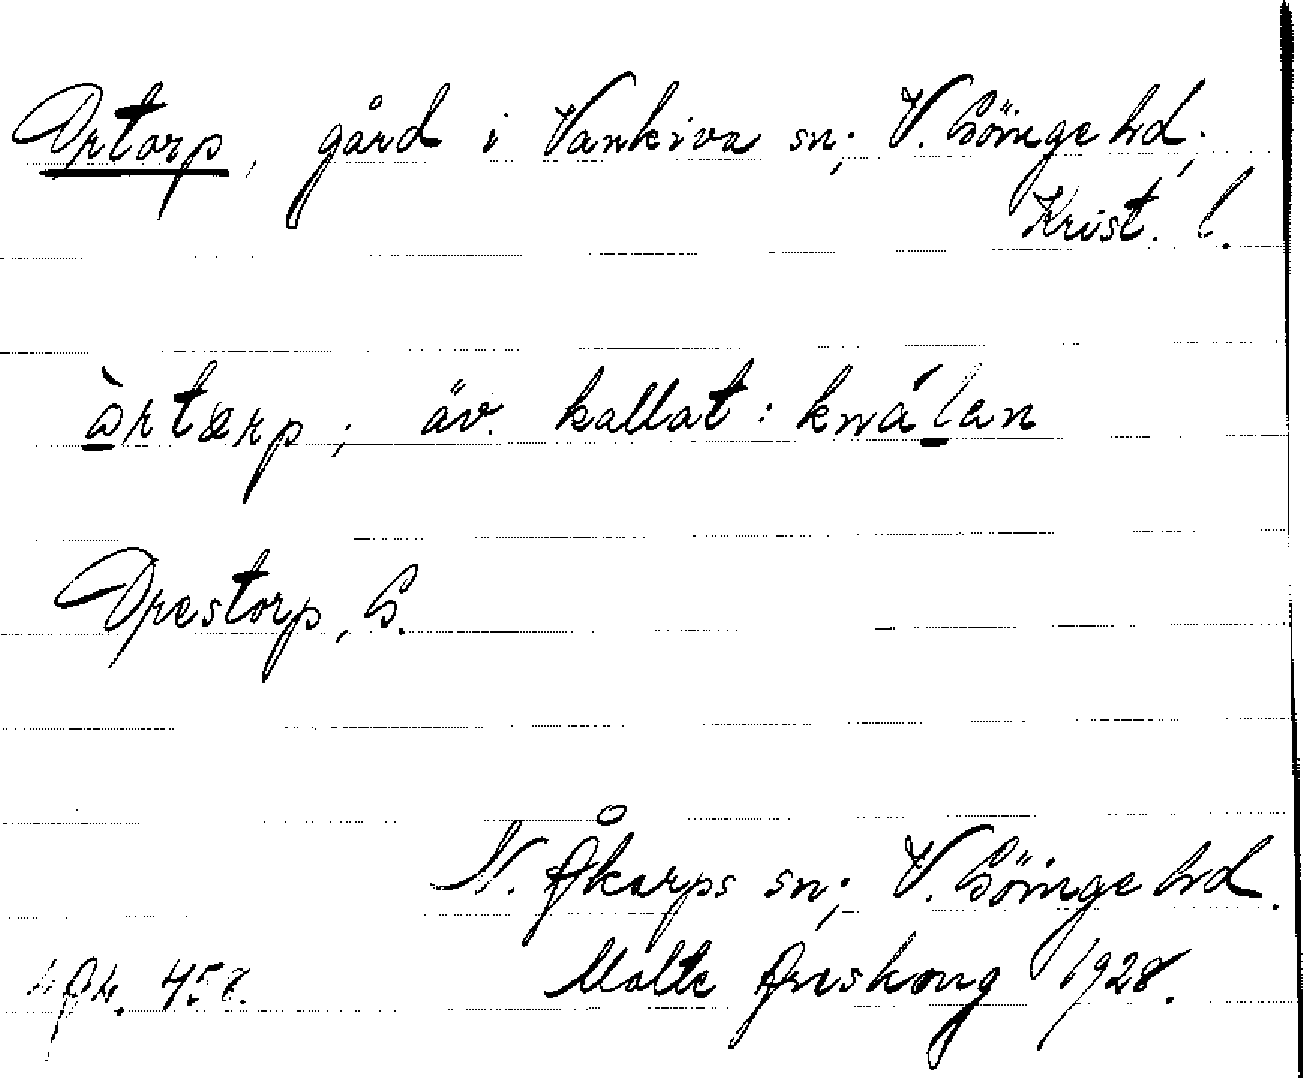 Ortarp, gård i Vankiva sn; V. Göinge hd;
Krist. l.
àrtærp; äv. kallat: knálen
Orestorp, G.
N. Åkarps sn; V. Göinge hd.
Malte Areskoug 1928.